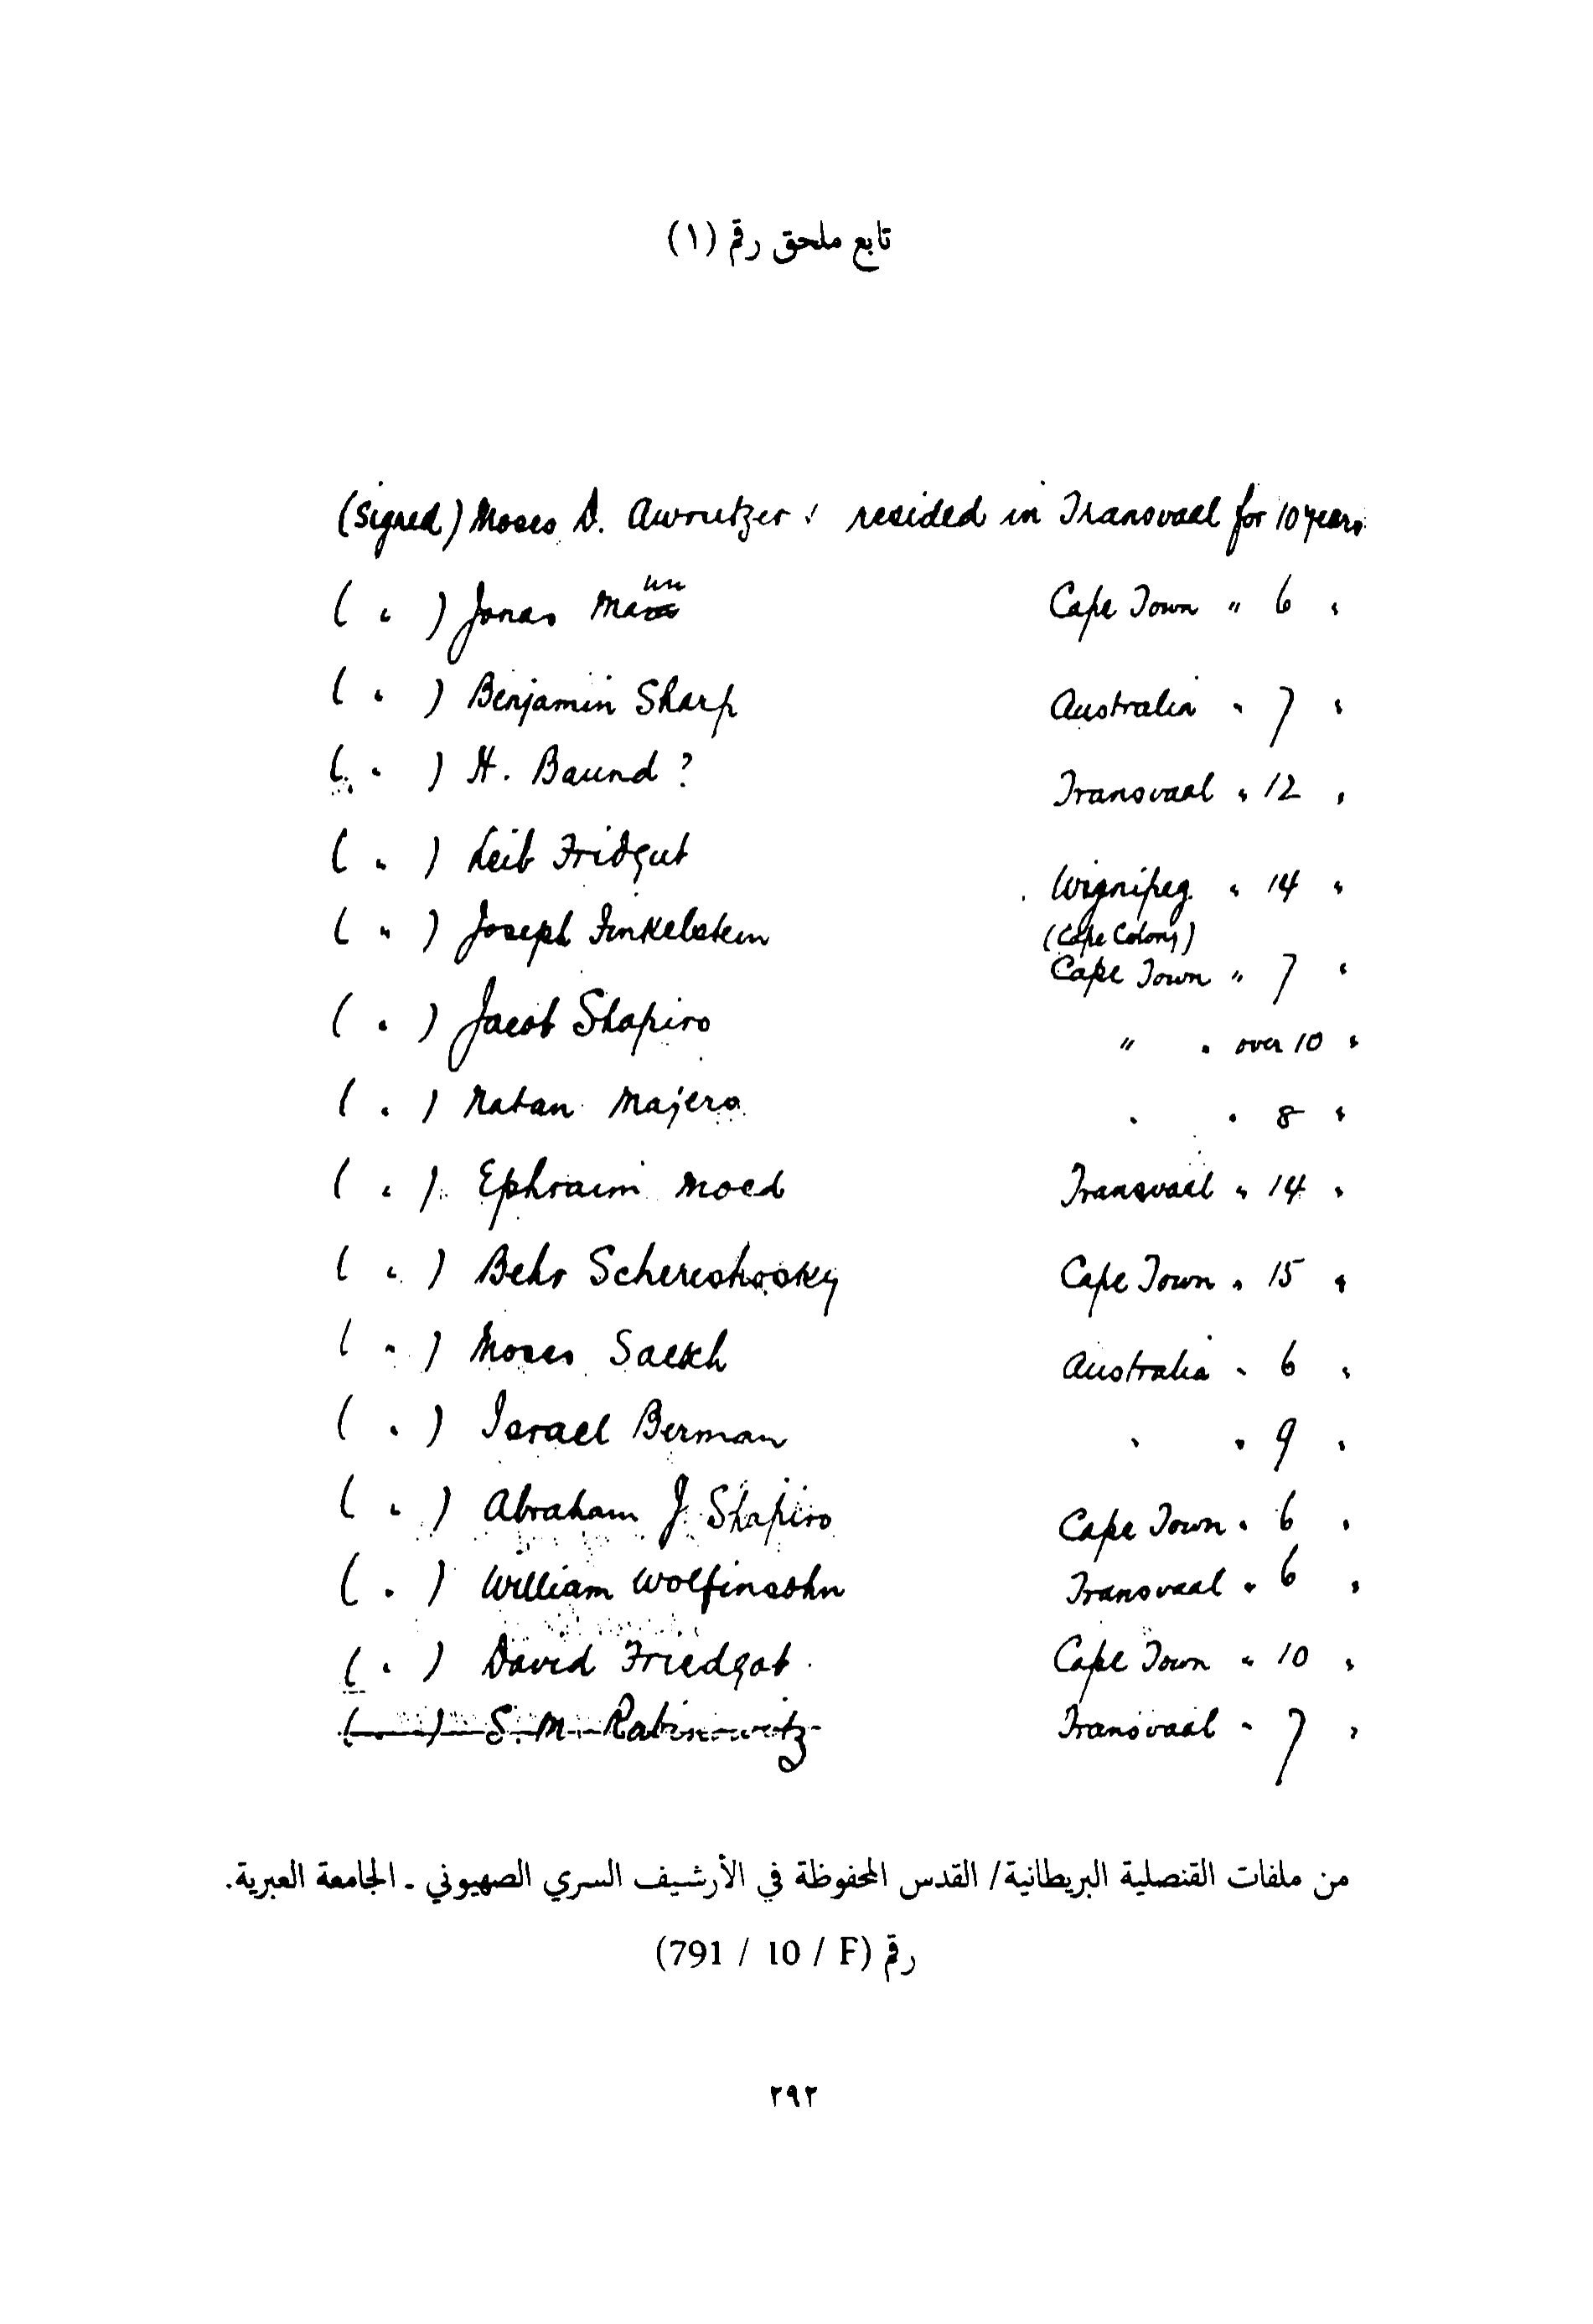 تابع ملحق رقم (١)
(Signed) Moses D. Awrutzer resided in Transvaal for 10 years
( " ) Jonas Mann Cape Town " 6 "
( " ) Benjamin Sharp Australia " 7 "
( " ) H. Baund ? Transvaal " 12 "
( " ) Leib Fridgut
Wignipeg " 14 "
( " ) Joseph Finkelstein (Cape Colony)
Cape Town " 7 "
( " ) Jacob Shapiro " " over 10 "
( " ) Natan Majero " " 8 "
( " ) Ephraim Moed Transvaal " 14 "
( " ) Behr Schereshosky Cape Town " 15 "
( " ) Moses Saekh Australia " 6 "
( " ) Israel Berman " " 9 "
( " ) Abraham J. Shapiro Cape Town " 6 "
( " ) William Wolfinsohn Transvaal " 6 "
( " ) David Friedgat Cape Town " 10 "
( " ) S. M. Rabinowitz Transvaal " 7 "
من ملفات القنصلية البريطانية/ القدس المحفوظة في الأرشيف السري الصهيوني - الجامعة العبرية.
رقم (791 / 10 / F)
٢٩٢